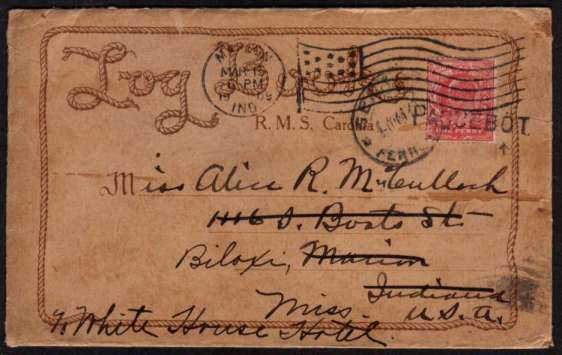 Log Book
MARION
MAR 15
PM
IND
R. M. S. Caronia
PAQUEBOT
Miss Alice R. McCulloch
1116 S. Boots St.
Biloxi, Marion
Indiana
Miss. U.S.A.
White House Hotel.